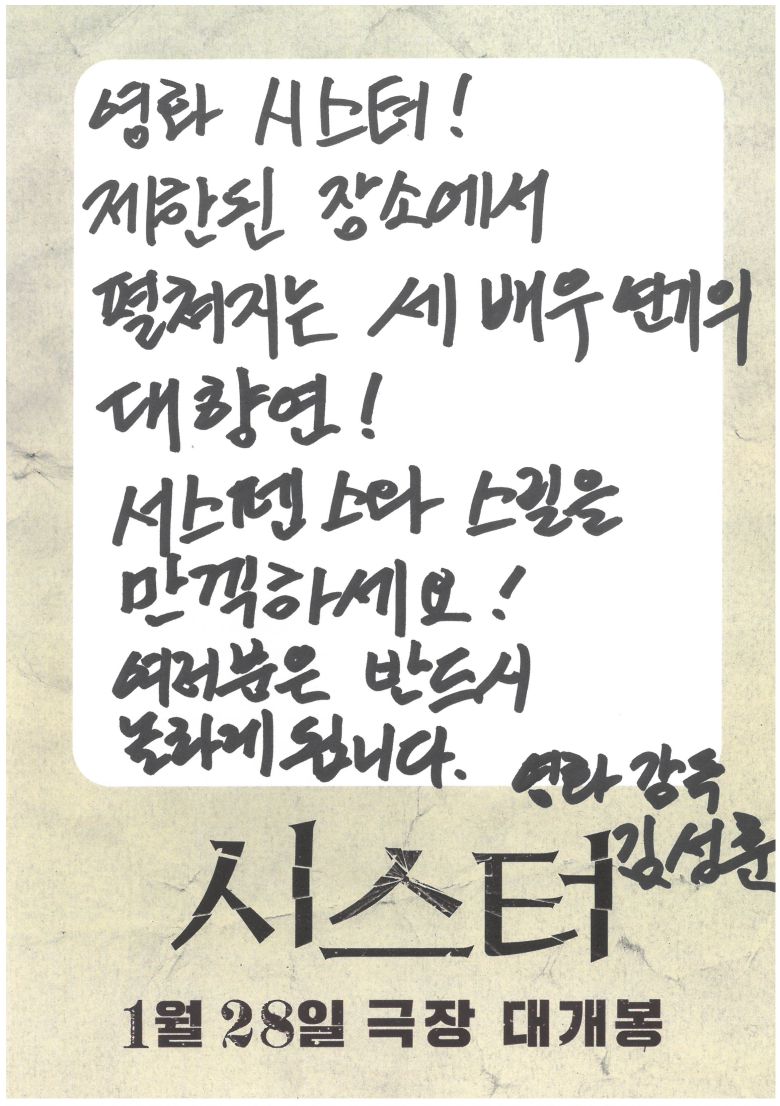 영화 시스터!
제한된 장소에서
펼쳐지는 세 배우 연기의
대향연!
서스펜스와 스릴을
만끽하세요!
여러분은 반드시
놀라게 됩니다.
영화 감독
김성훈
시스터
1월 28일 극장 대개봉